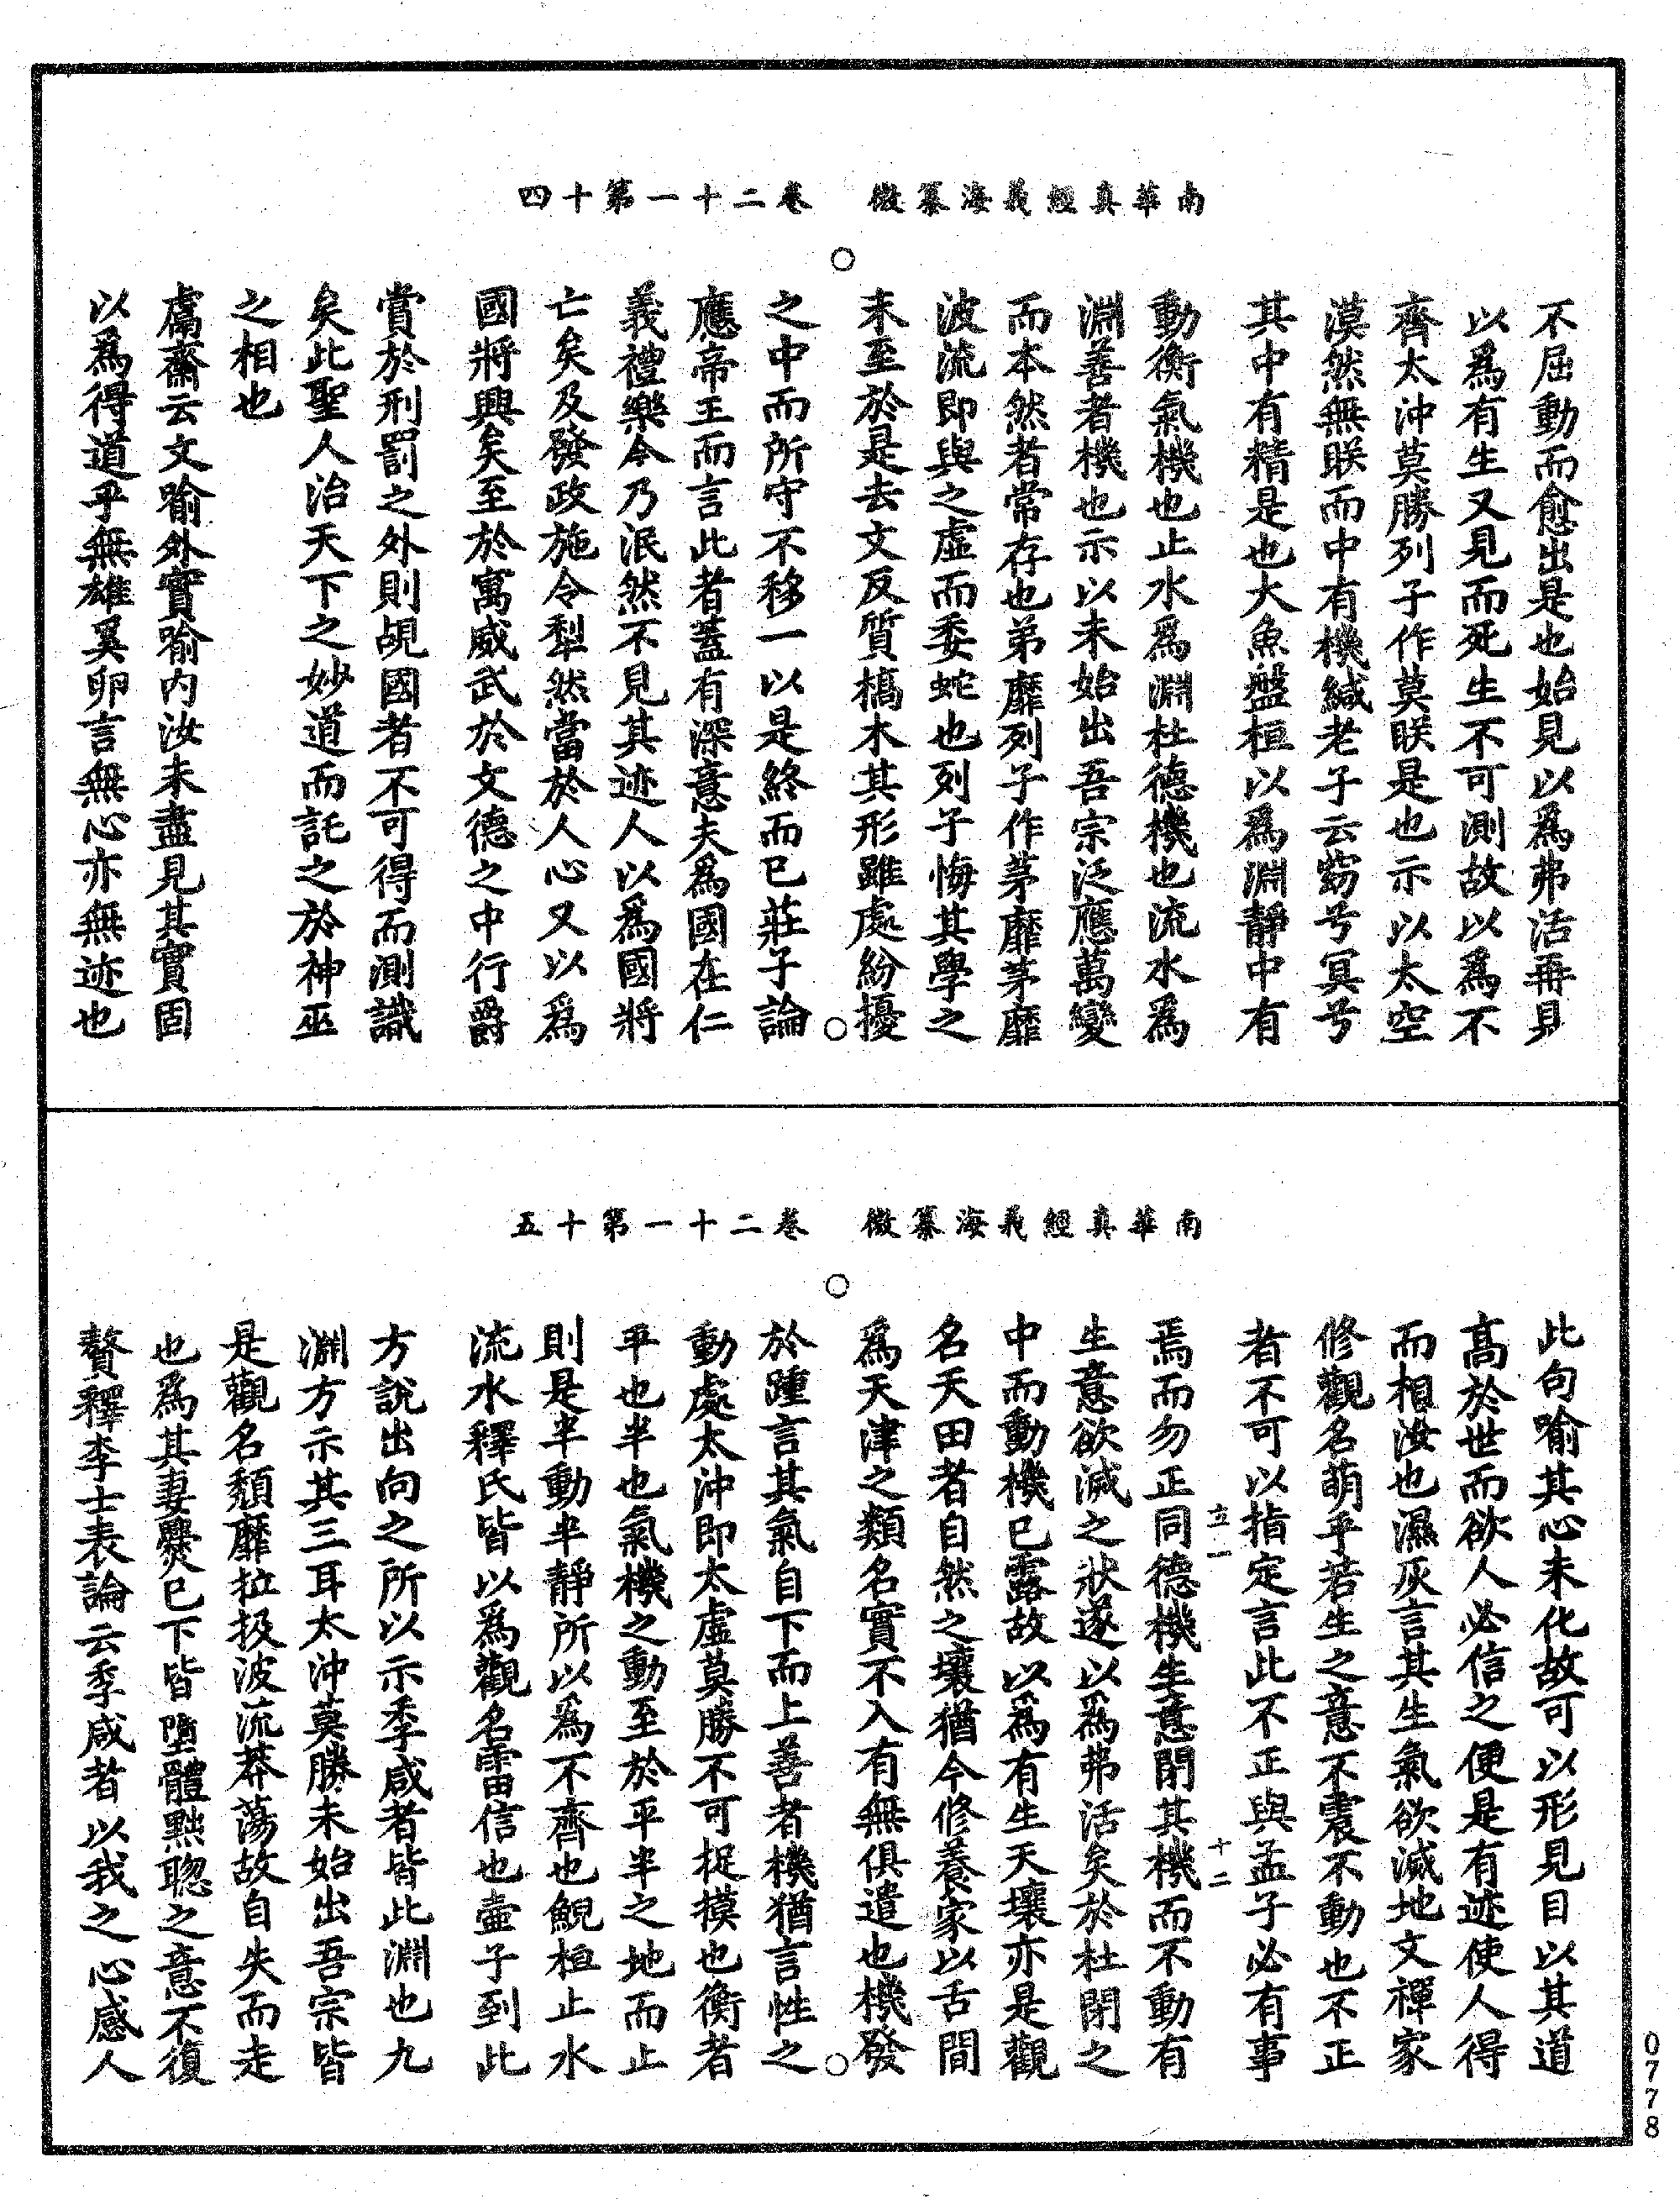 南華真經義海纂微　卷二十一第十四
不屈動而愈出是也始見以為弗活再見
以為有生又見而死生不可測故以為不
齊太沖莫勝列子作莫眹是也示以太空
漠然無眹而中有機緘老子云窈兮冥兮
其中有精是也大魚盤桓以為淵靜中有
動衡氣機也止水為淵杜德機也流水為
淵善者機也示以未始出吾宗泛應萬變
而本然者常存也弟靡列子作茅靡茅靡
波流即與之虛而委蛇也列子悔其學之
未至於是去文反質槁木其形雖處紛擾
之中而所守不移一以是終而已莊子論
應帝王而言此者蓋有深意夫為國在仁
義禮樂今乃泯然不見其迹人以為國將
亡矣及發政施令犁然當於人心又以為
國將興矣至於寓威武於文德之中行爵
賞於刑罰之外則覘國者不可得而測識
矣此聖人治天下之妙道而託之於神巫
之相也
鬳齋云文喻外實喻內汝未盡見其實固
以為得道乎無雄奚卵言無心亦無迹也
南華真經義海纂微　卷二十一第十五
此句喻其心未化故可以形見目以其道
高於世而欲人必信之便是有迹使人得
而相汝也濕灰言其生氣欲滅地文禪家
修觀名萌乎若生之意不震不動也不正
者不可以指定言此不正與孟子必有事
立一　十二
焉而勿正同德機生意閉其機而不動有
生意欲滅之狀遂以為弗活矣於杜閉之
中而動機已露故以為有生天壤亦是觀
名天田者自然之壤猶今修養家以舌間
為天津之類名實不入有無俱遣也機發
於踵言其氣自下而上善者機猶言性之
動處太沖即太虛莫勝不可捉摸也衡者
平也半也氣機之動至於平半之地而止
則是半動半靜所以為不齊也鯢桓止水
流水釋氏皆以為觀名審信也壺子到此
方說出向之所以示季咸者皆此淵也九
淵方示其三耳太沖莫勝未始出吾宗皆
是觀名頹靡拉扱波流莽蕩故自失而走
也為其妻爨已下皆墮體黜聰之意不復
贅釋李士表論云季咸者以我之心感人
0778